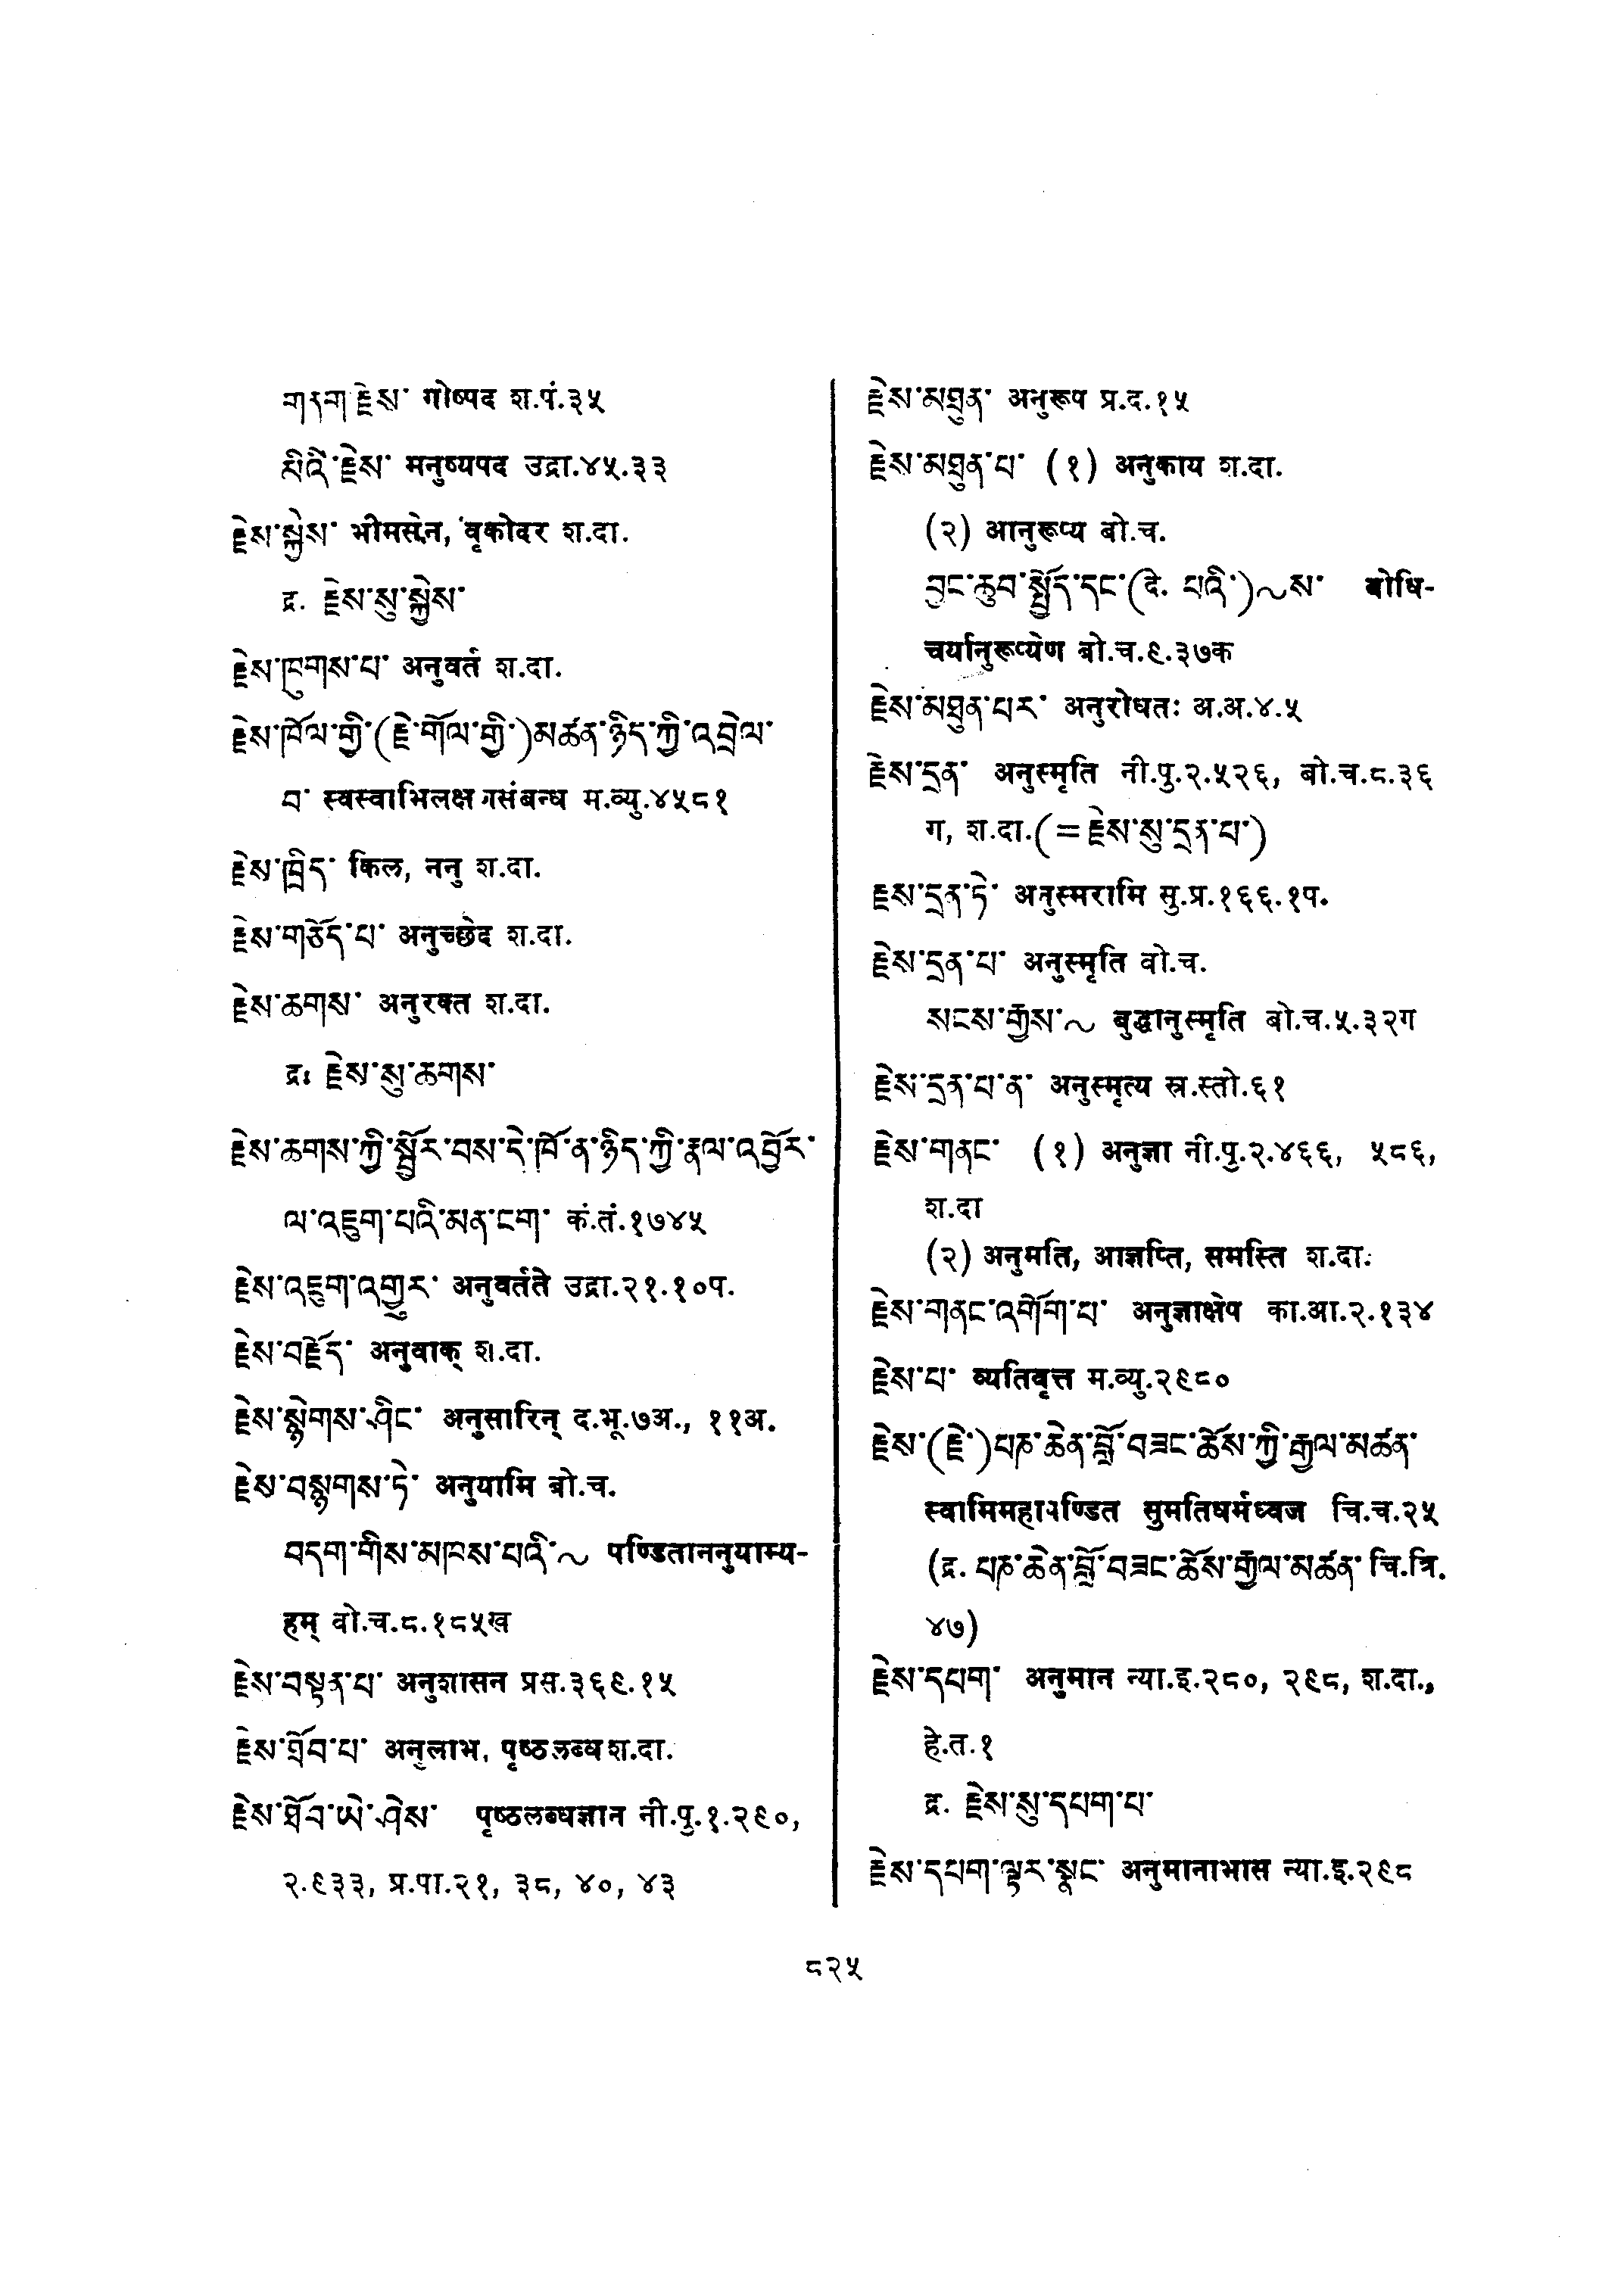 གནག་རྗེས་ गोष्पद श.पं.३५
མིའི་རྗེས་ मनुष्यपद उद्रा.४५.३३
རྗེས་སྐྱེས་ भीमसेन, वृकोदर श.दा.
द्र. རྗེས་སུ་སྐྱེས་
རྗེས་ཁུགས་པ་ अनुवर्त श.दा.
རྗེས་ཁོལ་གྱི་(རྗེ་གོལ་གྱི་)མཚན་ཉིད་ཀྱི་འབྲེལ་
བ་ स्वस्वाभिलक्षणसंबन्ध म.व्यु.४५८१
རྗེས་ཁྲིད་ किल, ननु श.दा.
རྗེས་གཅོད་པ་ अनुच्छेद श.दा.
རྗེས་ཆགས་ अनुरक्त श.दा.
द्र. རྗེས་སུ་ཆགས་
རྗེས་ཆགས་ཀྱི་སྦྱོར་བས་དེ་ཁོ་ན་ཉིད་ཀྱི་རྣལ་འབྱོར་
ལ་འཇུག་པའི་མན་ངག་ कं.तं.१७४५
རྗེས་འཇུག་འགྱུར་ अनुवर्तते उद्रा.२१.१०प.
རྗེས་བརྗོད་ अनुवाक् श.दा.
རྗེས་སྙེགས་ཤིང་ अनुसारिन् द.भू.७अ., ११अ.
རྗེས་བསྙགས་ཏེ་ अनुयामि बो.च.
བདག་གིས་མཁས་པའི་~ पण्डिताननुयाम्य-
हम् बो.च.८.१८५ख
རྗེས་བསྟན་པ་ अनुशासन प्रस.३६९.१५
རྗེས་ཐོབ་པ་ अनुलाभ, पृष्ठलब्ध श.दा.
རྗེས་ཐོབ་ཡེ་ཤེས་ पृष्ठलब्धज्ञान नी.पु.१.२९०,
२.९३३, प्र.पा.२१, ३८, ४०, ४३
རྗེས་མཐུན་ अनुरूप प्र.द.१५
རྗེས་མཐུན་པ་ (१) अनुकाय श.दा.
(२) आनुरूप्य बो.च.
བྱང་ཆུབ་སྤྱོད་དང་(दे. པའི་)~ས་ बोधि-
चर्यानुरूप्येण बो.च.९.३७क
རྗེས་མཐུན་པར་ अनुरोधतः अ.अ.४.५
རྗེས་དྲན་ अनुस्मृति नी.पु.२.५२६, बो.च.८.३६
ग, श.दा.(=རྗེས་སུ་དྲན་པ་)
རྗེས་དྲན་ཏེ་ अनुस्मरामि सु.प्र.१६६.१प.
རྗེས་དྲན་པ་ अनुस्मृति बो.च.
སངས་རྒྱས་~ बुद्धानुस्मृति बो.च.५.३२ग
རྗེས་དྲན་པ་ན་ अनुस्मृत्य स्र.स्तो.६१
རྗེས་གནང་ (१) अनुज्ञा नी.पु.२.४६६, ५८६,
श.दा
(२) अनुमति, आज्ञप्ति, समस्ति श.दा.
རྗེས་གནང་འགོག་པ་ अनुज्ञाक्षेप का.आ.२.१३४
རྗེས་པ་ व्यतिवृत्त म.व्यु.२९८०
རྗེས་(རྗེ་)པཎ་ཆེན་བློ་བཟང་ཆོས་ཀྱི་རྒྱལ་མཚན་
स्वामिमहापण्डित सुमतिधर्मध्वज चि.च.२५
(द्र. པཎ་ཆེན་བློ་བཟང་ཆོས་རྒྱལ་མཚན་ चि.त्रि.
४७)
རྗེས་དཔག་ अनुमान न्या.इ.२८०, २९८, श.दा.,
हे.त.१
द्र. རྗེས་སུ་དཔག་པ་
རྗེས་དཔག་ལྟར་སྣང་ अनुमानाभास न्या.इ.२९८
८२५